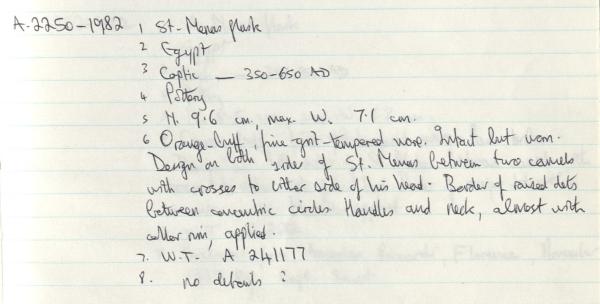 A.2250-1982 1 St. Menas flask
2 Egypt
3 Coptic — 350-650 AD
4 Pottery
5 H. 9.6 cm. max. W. 7.1 cm.
6 Orange-buff, fine-grit-tempered ware. Intact but worn.
Design on both sides of St. Menas between two camels
with crosses to either side of his head. Border of raised dots
between concentric circles Handles and neck, almost with
collar rim, applied.
7. W.T. A 241177
8. no details ?